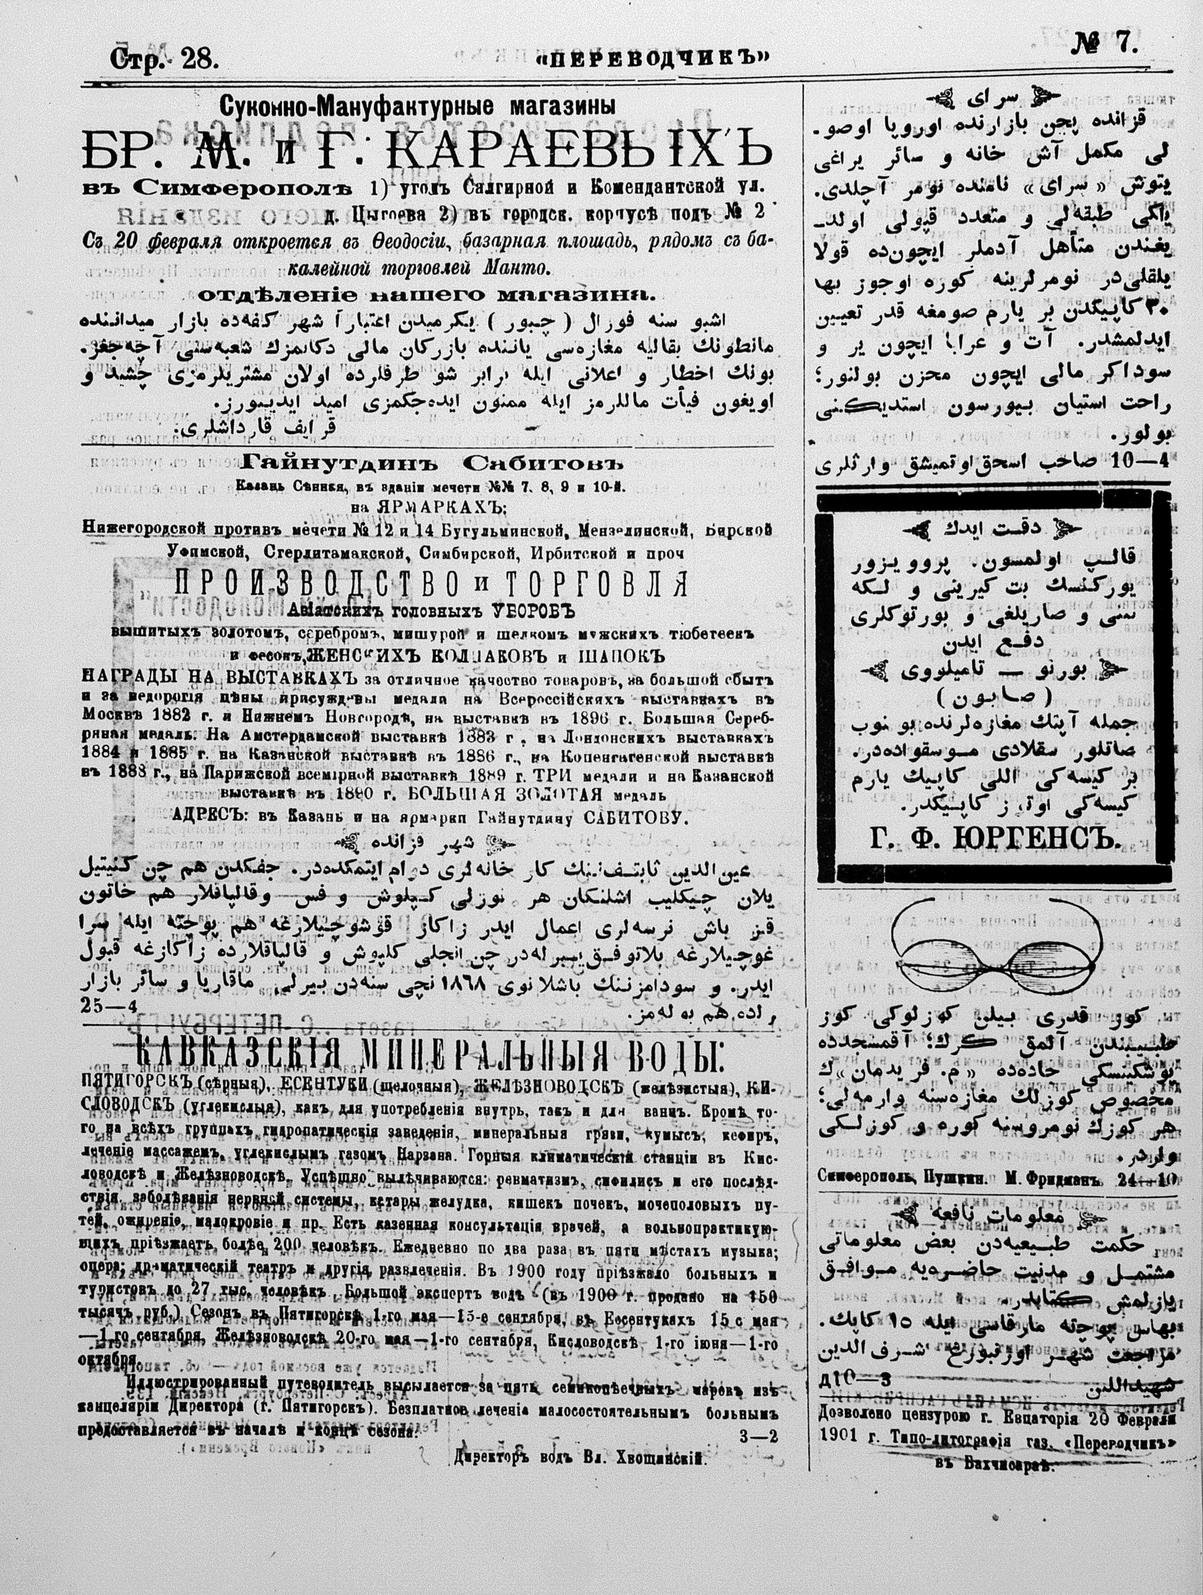 Стр. 28.
«ПЕРЕВОДЧИКЪ»
№ 7.
Суконно-Мануфактурные магазины
БР. М. и Г. КАРАЕВЫХЪ
въ Симферополѣ 1) уголъ Салгирной и Комендантской ул.
д. Цыгоева 2) въ городск. корпусѣ подъ № 2
Съ 20 февраля откроется въ Ѳеодосіи, базарная площадь, рядомъ съ ба-
калейной торговлей Манто.
отдѣленіе нашего магазина.
اشبو سنه فورال ( چبور ) یکرمیدن اعتباراً شهر کفه‌ده بازار میداننده
مانطونك بقالیه مغازه‌سی یاننده بازرکان مالی دکانمزك شعبه‌سی آچه‌جغز.
بونك اخطار و اعلانی ایله برابر شو طرفلرده اولان مشتریلرمزی چشید و
اویغون فیأت ماللرمز ایله ممنون ایده‌جکمزی امید ایدییورز.
قرایف قارداشلری.
Гайнутдинъ Сабитовъ
Казань Сѣнная, въ зданіи мечети №№ 7, 8, 9 и 10-й.
на ЯРМАРКАХЪ:
Нижегородской противъ мечети № 12 и 14 Бугульминской, Мензелинской, Бирской
Уфимской, Стерлитамакской, Симбирской, Ирбитской и проч
ПРОИЗВОДСТВО и ТОРГОВЛЯ
Азіатскихъ головныхъ УБОРОВЪ
вышитыхъ золотомъ, серебромъ, мишурой и шелкомъ мужскихъ тюбетеекъ
и фесокъ, ЖЕНСКИХЪ КОЛПАКОВЪ и ШАПОКЪ
НАГРАДЫ НА ВЫСТАВКАХЪ за отличное качество товаровъ, на большой сбытъ
и за недорогія цѣны присуждены медали на Всероссійскихъ выставкахъ въ
Москвѣ 1882 г. и Нижнемъ Новгородѣ, на выставкѣ въ 1896 г. Большая Сереб-
ряная медаль: На Амстердамской выставкѣ 1883 г., на Лондонскихъ выставкахъ
1884 и 1885 г. на Казанской выставкѣ въ 1886 г., на Копенгагенской выставкѣ
въ 1888 г., на Парижской всемірной выставкѣ 1889 г. ТРИ медали и на Казанской
выставкѣ въ 1890 г. БОЛЬШАЯ ЗОЛОТАЯ медаль
АДРЕСЪ: въ Казань и на ярмарки Гайнутдину САБИТОВУ.
شهر قزانده
عین‌الدین ثابتف‌ننك کار خانه‌لری دوام ایتمکده‌در.
25—4
КАВКАЗСКІЯ МИНЕРАЛЬНЫЯ ВОДЫ:
ПЯТИГОРСКЪ (сѣрныя), ЕСЕНТУКИ (щелочныя), ЖЕЛѢЗНОВОДСКЪ (желѣзистыя), КИ-
СЛОВОДСКЪ (углекислыя), какъ для употребленія внутрь, такъ и для ваннъ. Кромѣ то-
го на всѣхъ группахъ гидропатическія заведенія, минеральныя грязи, кумысъ, кефиръ,
леченіе массажемъ, углекислымъ газомъ Нарзана. Горныя климатическія станціи въ Кис-
ловодскѣ и Желѣзноводскѣ. Успѣшно вылѣчиваются: ревматизмъ, сифилисъ и его послѣд-
ствія, заболѣванія нервной системы, катары желудка, кишекъ почекъ, мочеполовыхъ пу-
тей, ожиреніе, малокровіе и пр. Есть казенная консультація врачей, а вольнопрактикую-
щихъ пріѣзжаетъ болѣе 200 человѣкъ. Ежедневно по два раза въ пяти мѣстахъ музыка;
опера; драматическій театръ и другія развлеченія. Въ 1900 году пріѣзжало больныхъ и
туристовъ до 27 тыс. человѣкъ. Большой экспортъ водъ (въ 1900 г. продано на 150
тысячъ руб.) Сезонъ въ Пятигорскѣ 1-го мая—15-е сентября, въ Есентукахъ 15 с мая
—1-го сентября, Желѣзноводскѣ 20-го мая—1-го сентября, Кисловодскѣ 1-го іюня—1-го
октября.
Иллюстрированный путеводитель высылается за пять семикопѣечныхъ марокъ изъ
канцеляріи Директора (г. Пятигорскъ). Безплатное леченіе малосостоятельнымъ больнымъ
предоставляется въ началѣ и концѣ сезона. 3—2
Директоръ водъ Вл. Хвощинскій.
سرای
قزانده پچن بازارنده اوروپا اوصو-
لی مکمل آش خانه و سائر یراغی
یتوش «سرای» نامنده نومر آچلدی.
ایکی طبقه‌لی و متعدد قپولی اولد-
یغندن متأهل آدملر ایچون‌ده قولا
یلقلی‌در نومرلرینه کوره اوجوز بها
٣٠ کاپیکدن بر یارم صومغه قدر تعیین
ایدلمشدر. آت و عرابا ایچون یر و
سوداکر مالی ایچون محزن بولنور؛
راحت استیان بیورسون استدیکنی
بولور.
10—4 صاحب اسحق اوتمیشف وارثلری
دقت ایدك
قالب اولمسون. پروویزور
یورکنسك بت کیرینی و لکه
سنی و صاریلغی و بورتوکلری
دفع ایدن
بورنو — تامیلووی
(صابون)
جمله آپتك مغازه‌لرنده بو نوب
صاتلور سقلادی موسقواده‌در.
بر کیسه‌کی اللی کاپیك یارم
کیسه‌کی اوتوز کاپیکدر.
Г. Ф. ЮРГЕНСЪ.
کوز قدری بیلن کوزلوکی کوز
طبیبندن آلمق کرك؛ آقمسجدده
پوشکینسکی جاده‌ده «م. فریدمان»ك
مخصوص کوزلك مغازه‌سنه وارمه‌لی؛
هر کوزك نومروسنه کوره و کوزلکی
واردر.
Симферополь, Пушкин. М. Фридманъ 24—10
معلومات نافعه
حکمت طبیعیه‌دن بعض معلوماتی
مشتمل و مدنیت حاضره‌یه موافق
یازلمش کتابدر.
بهاسی پوچته مارقاسی ایله ١٥ کاپك.
مراجعت شهر اورنبورغ شرف الدین
شهیداللین 10—3
Дозволено цензурою г. Евпаторія 20 Февраля
1901 г. Типо-литографія газ. «Переводчикъ»
въ Бахчисараѣ.